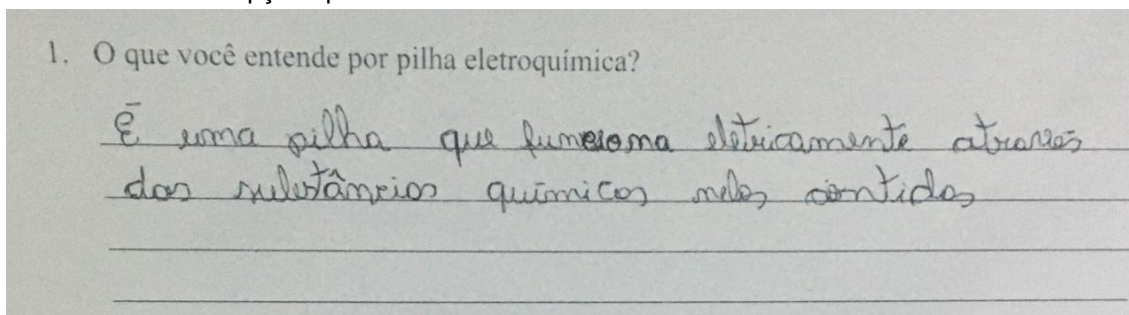 1. O que você entende por pilha eletroquímica?
É uma pilha que funciona eletricamente através
das substâncias químicas neles contidas